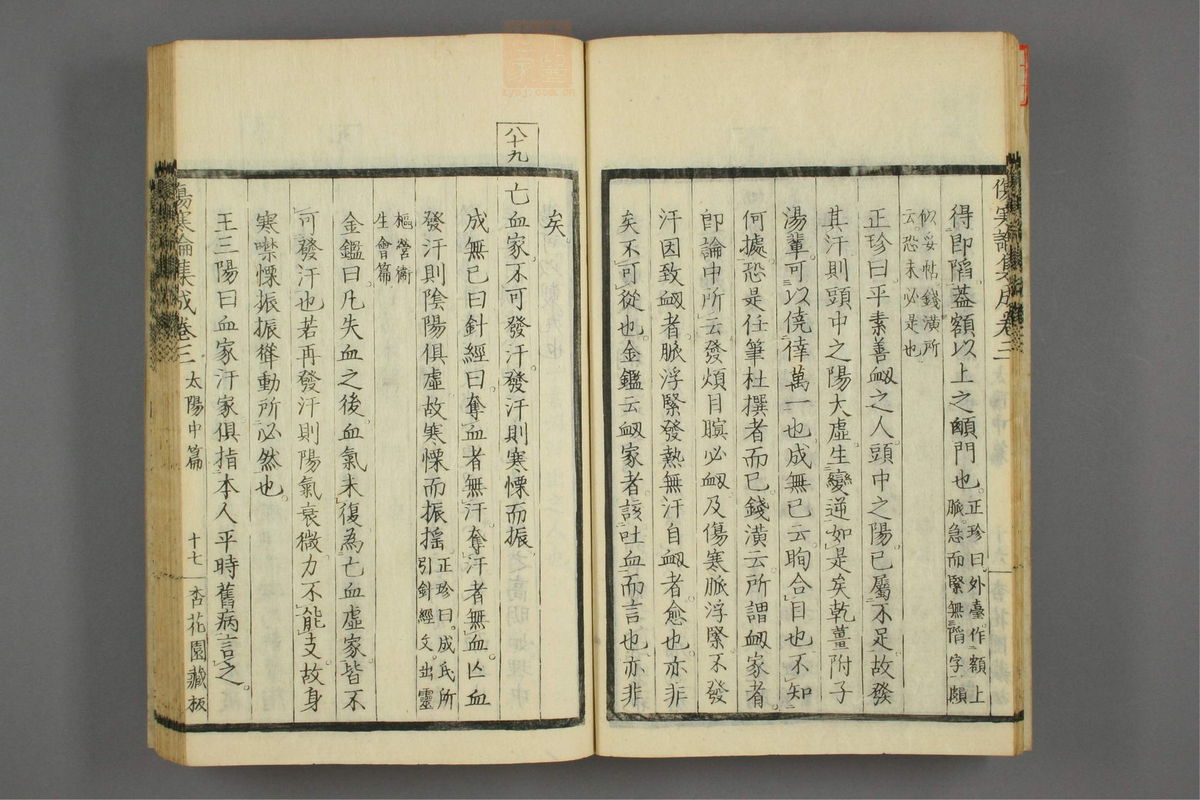 傷寒論集成卷三
得即䧟蓋額以上之頟門也正珍曰外臺作額上
脈急而緊無䧟字頗
似妥帖錢潢所
云恐未必是也
正珍曰平素善衂之人頭中之陽已屬不足故發
其汗則頭中之陽大虛生變逆如是矣乾薑附子
湯輩可以僥倖萬一也成無已云眴合目也不知
何據恐是任筆杜撰者而已錢潢云所謂衂家者
即論中所云發煩目瞑必衂及傷寒脈浮緊不發
汗因致衂者脈浮緊發熱無汗自衂者愈也亦非
矣不可從也金鑑云衂家者該吐血而言也亦非
矣
八十九
亡血家不可發汗發汗則寒慄而振
成無已曰針經曰奪血者無汗奪汗者無血亾血
發汗則陰陽俱虛故寒慄而振搖正珍曰成氏所
引針經文出靈
樞營衞
生會篇
金鑑曰凡失血之後血氣未復為亡血虛家皆不
可發汗也若再發汗則陽氣衰微力不能支故身
寒噤慄振振聳動所必然也
王三陽曰血家汗家俱指本人平時舊病言之
傷寒論集成卷三 太陽中篇 十七 杏花園藏板